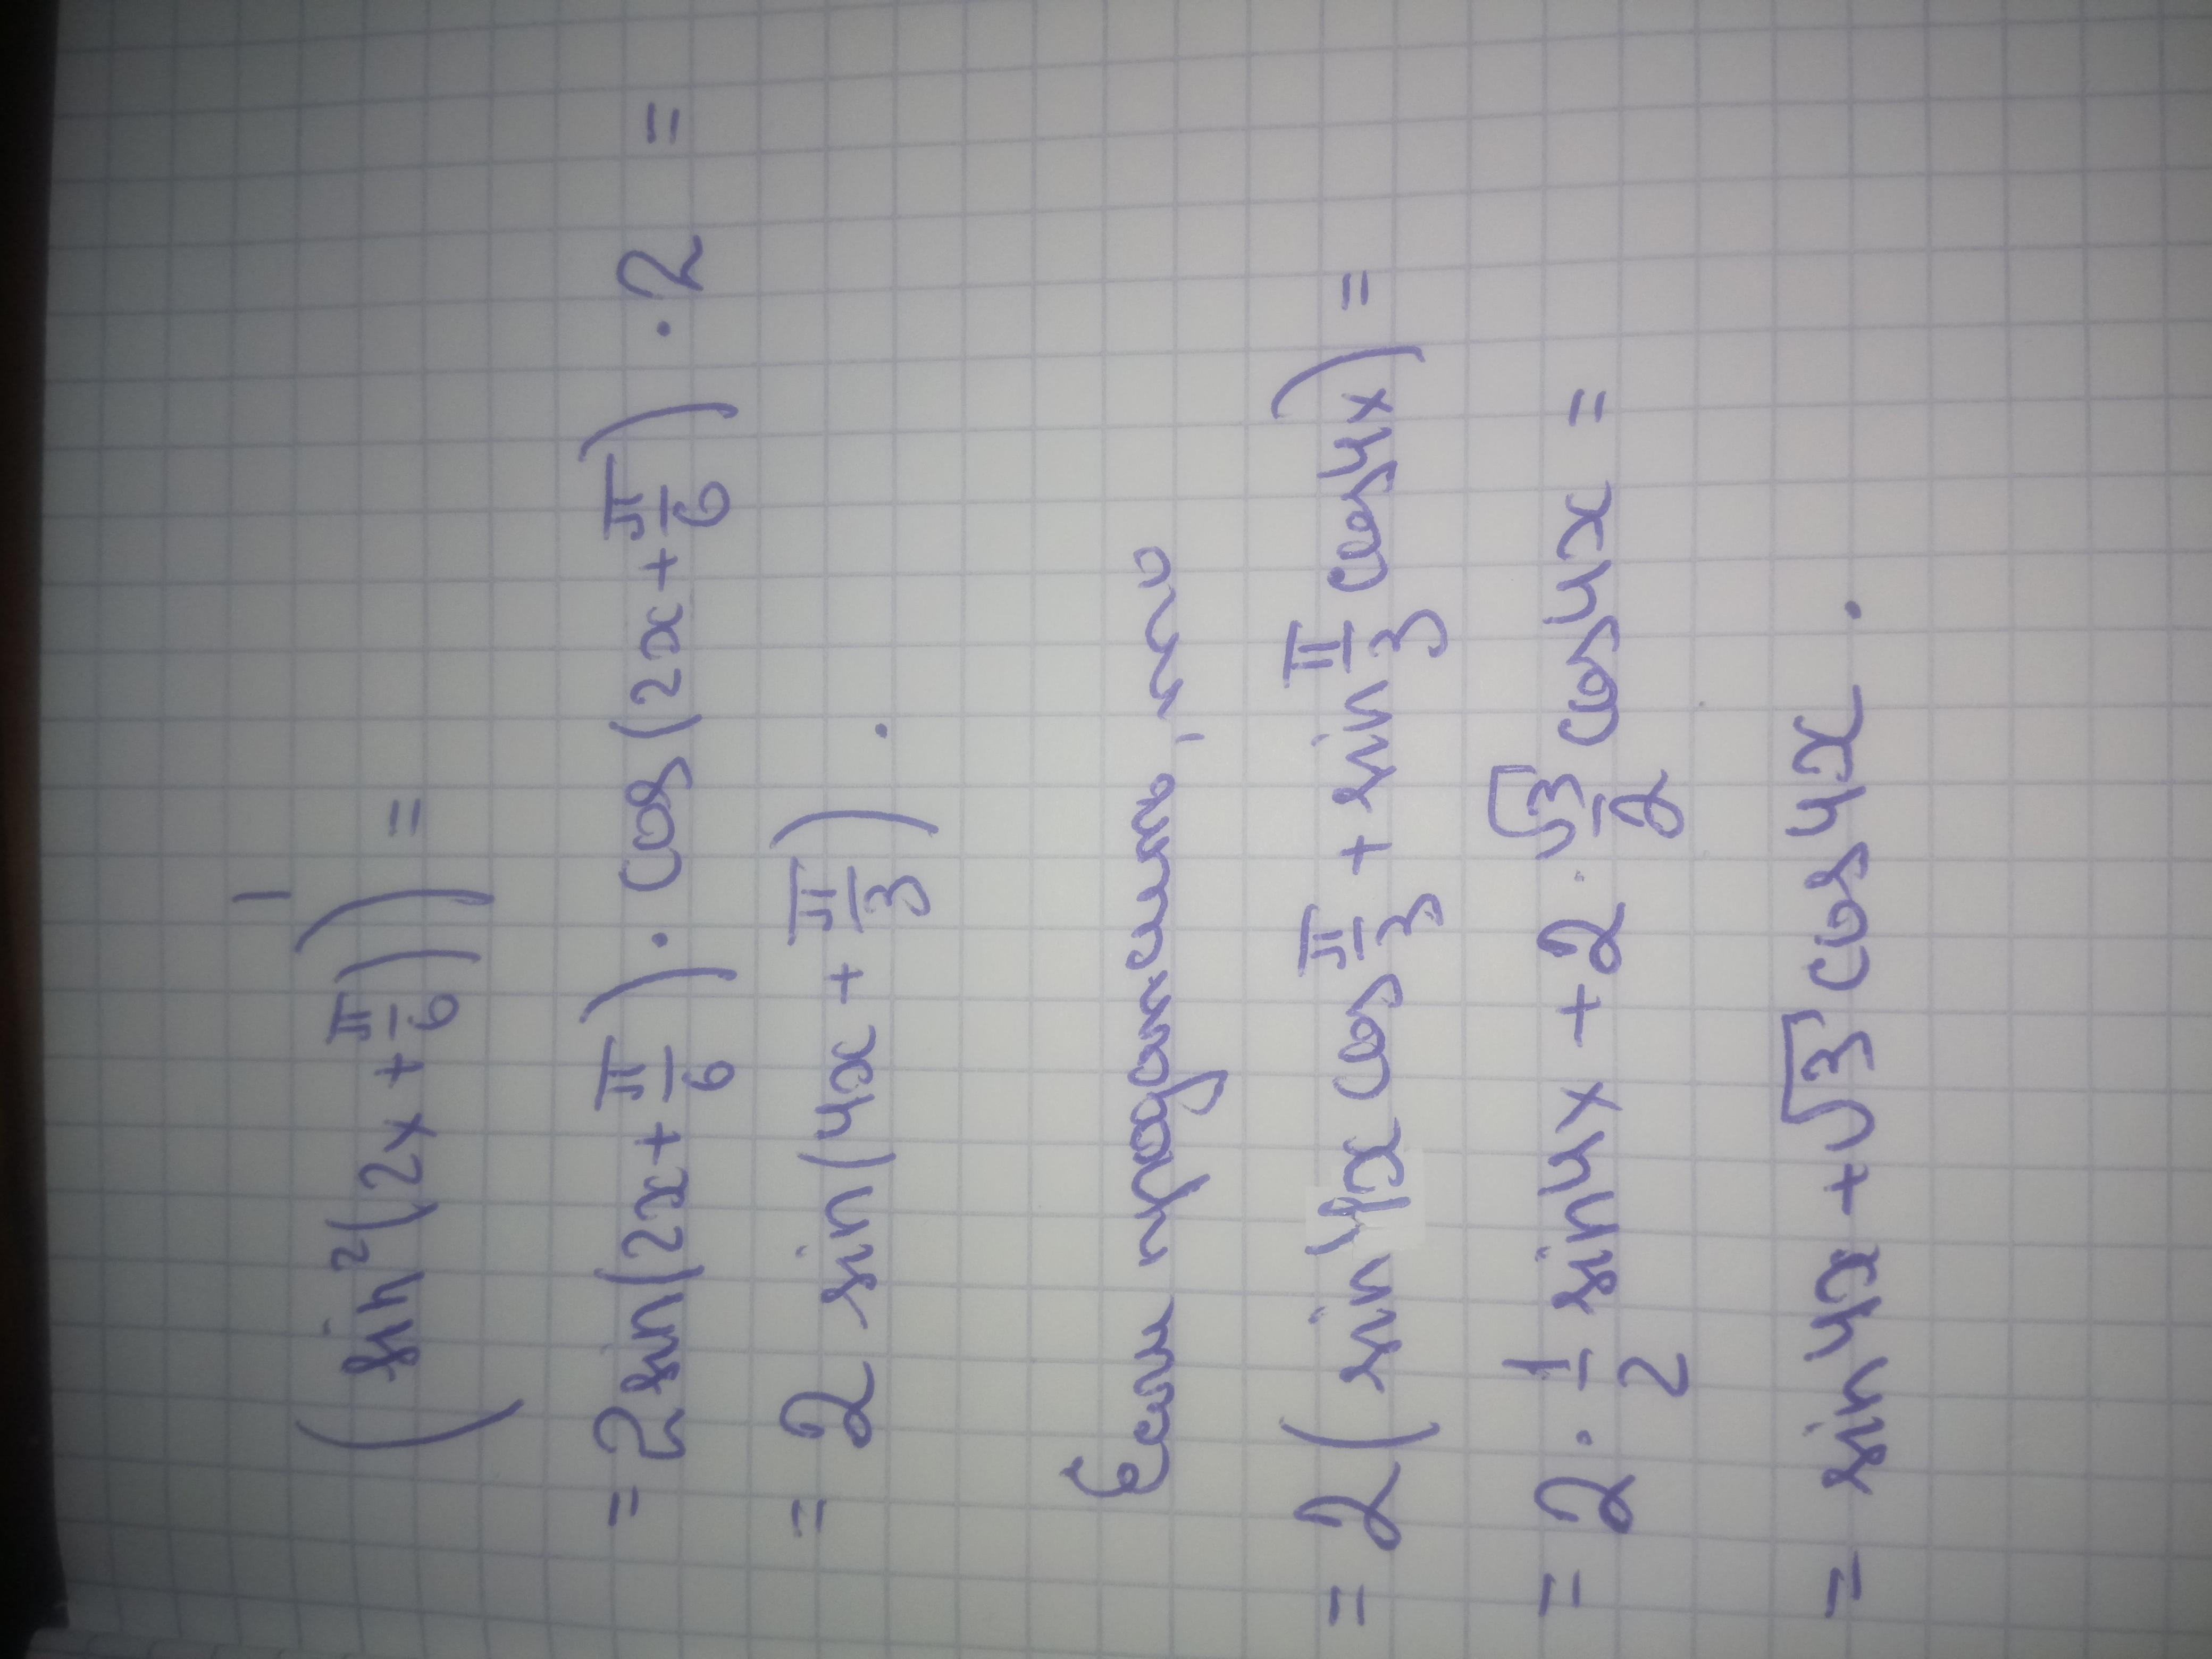 (sin²(2x + π/6))' =
= 2 sin(2x + π/6) · cos(2x + π/6) · 2 =
= 2 sin(4x + π/3) .
Если продолжить, то
= 2(sin4x cos π/3 + sin π/3 cos4x) =
= 2 · 1/2 sin4x + 2 · √3/2 cos4x =
= sin4x + √3 cos4x .